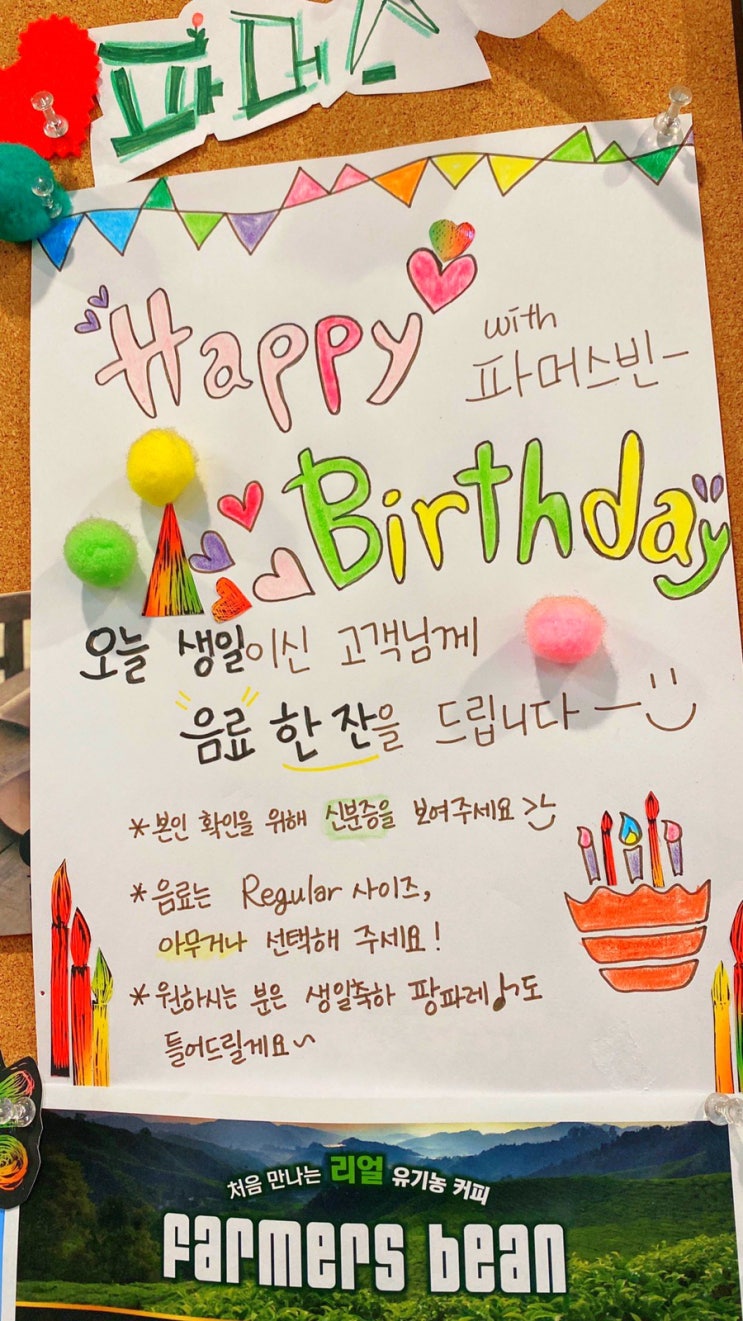 파머스
Happy
with
파머스빈~
Birthday
오늘 생일이신 고객님께
음료 한 잔을 드립니다~
*본인 확인을 위해 신분증을 보여주세요
*음료는 Regular 사이즈,
아무거나 선택해 주세요!
*원하시는 분은 생일축하 팡파레♪도
틀어드릴게요~
처음 만나는 리얼 유기농 커피
farmers bean